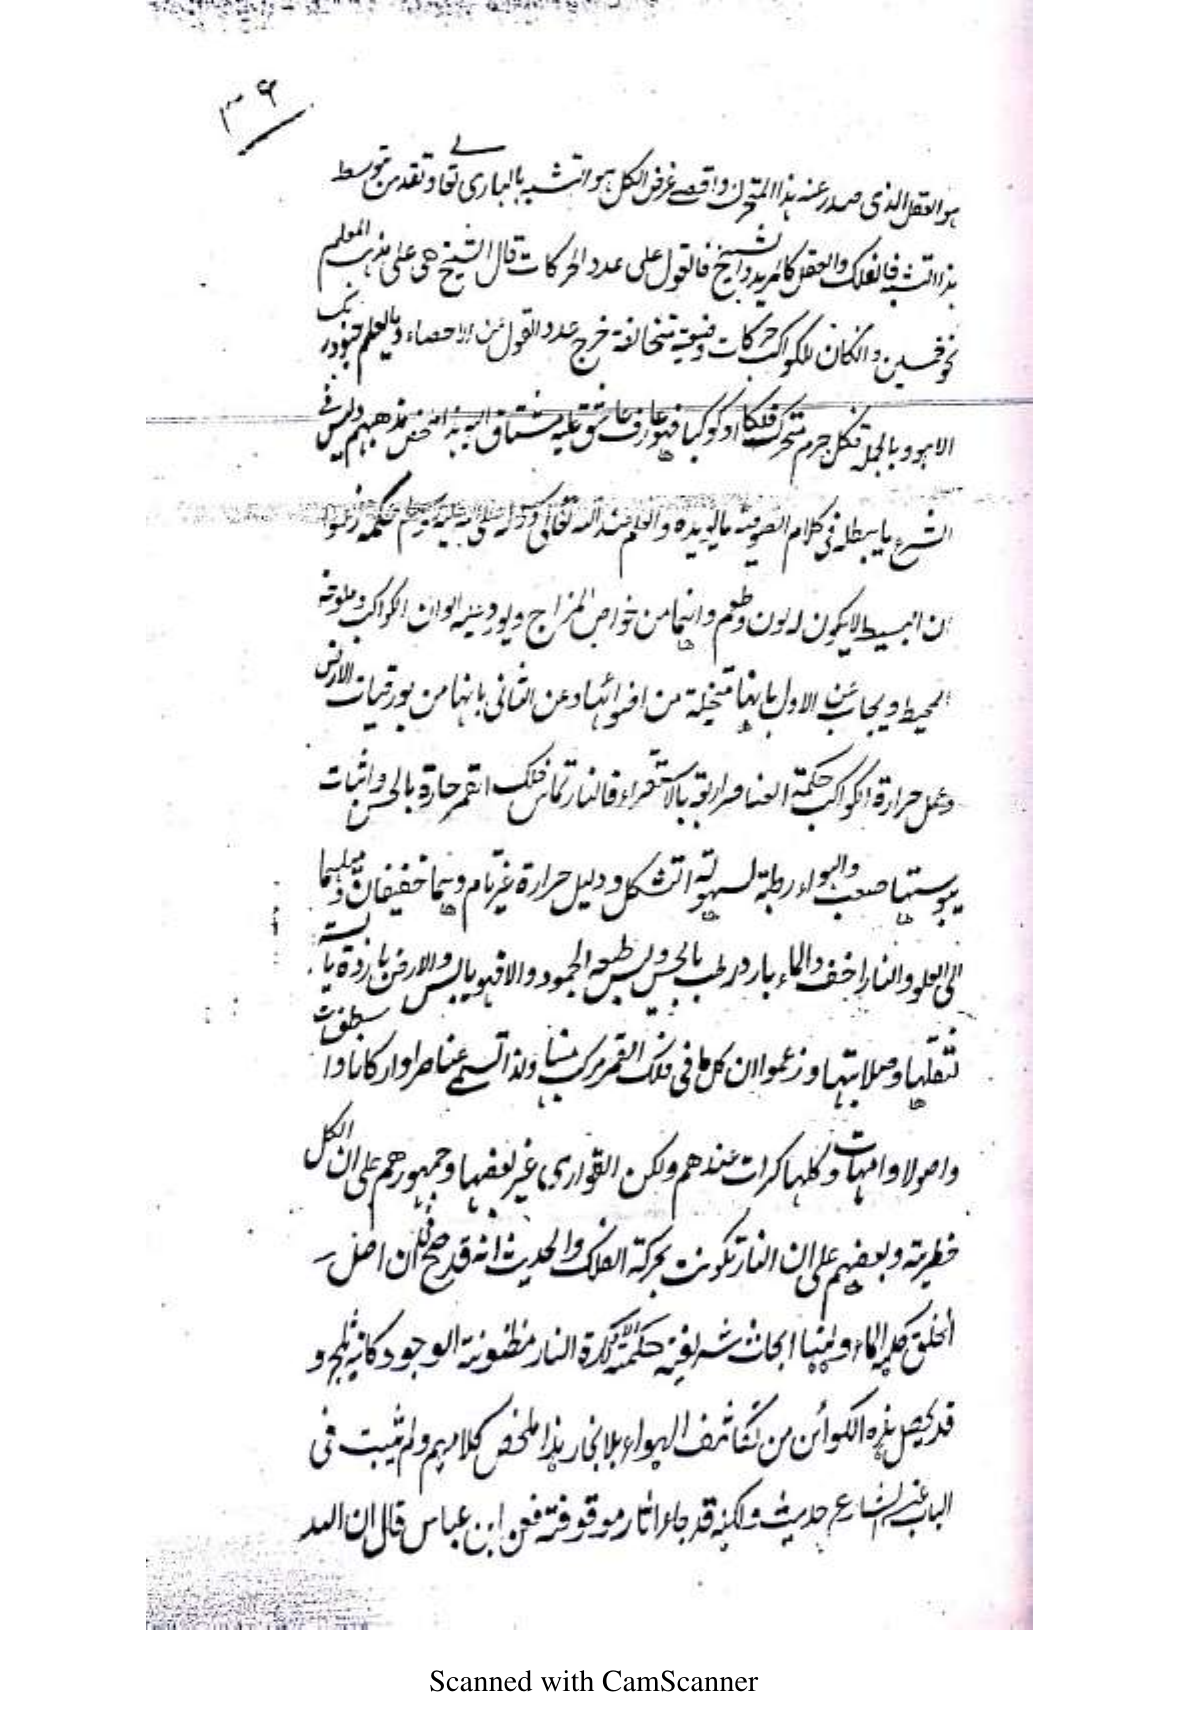 ٣٦
هو العقل الذی صدر عنه هذا المتحرک واقصے غرض الکل هو التشبه بالباری تعالے وتقدس بتوسط
هذا التشبه فالفلک والعقل کالمرید والشیخ فالقول علی عدد الحرکات قال الشیخ هی علی مذهب المعلم
نحو خمسین وان کان للکواکب حرکات وضعیة متخالفة خرج عدد القول عن الاحصاء وما یعلم جنود ربک
الا هو وبالجملة فکل جرم متحرک فلکا او کوکبا فهو عارف عاشق علیه مشتاق الیه هذا ملخص مذهبهم ولیس فے
الشرع ما یبطله فی کلام الصوفیة ما یؤیده والعلم عند الله تعالی ورسوله صلی الله علیه وسلم حکمة زعموا
ان البسیط لا یکون له لون وطعم وانهما من خواص المزاج ویورد علیه الوان الکواکب وملوحة
المحیط ویجاب عن الاول بانها متخیلة من اضوائها وعن الثانی بانها من بورقیات الارض
وعمل حرارة الکواکب حکمة العناصر اربعة بالاستقراء فالنار تماس فلک القمر حارة بالحس واثبات
یبوستها صعب والهواء رطبة لسهولة التشکل ودلیل حرارة غیر تام وهما خفیفان ومیلهما
الی العلو والنار اخف والماء بارد رطب بالحس ولیس طبعه الجمود والا فهو یابس والارض باردة یابسة
لثقلها وصلابتها وزعموا ان کل ما فی فلک القمر مرکب منها ولذا تسمے عناصر وارکانا واسطقسات
واصولا وامهات وکلها کرات عندهم ولکن القواری غیر بعضها وجمهورهم علی ان الکل
فطریة وبعضهم علی ان النار تکونت بحرکة الفلک والحدیث انه قد صح ان اصل
الخلق کله الماء وههنا ابحاث شریفة حکمة کرة النار مظنونة الوجود کانه ثلج و
قد یحصل هذه الکوائن من تکاثف الهواء بلا بخار هذا ملخص کلامهم ولم یثبت فی
الباب عن الشارع حدیث ولکنه قد جاء اثار موقوفة فعن ابن عباس قال ان الله
Scanned with CamScanner